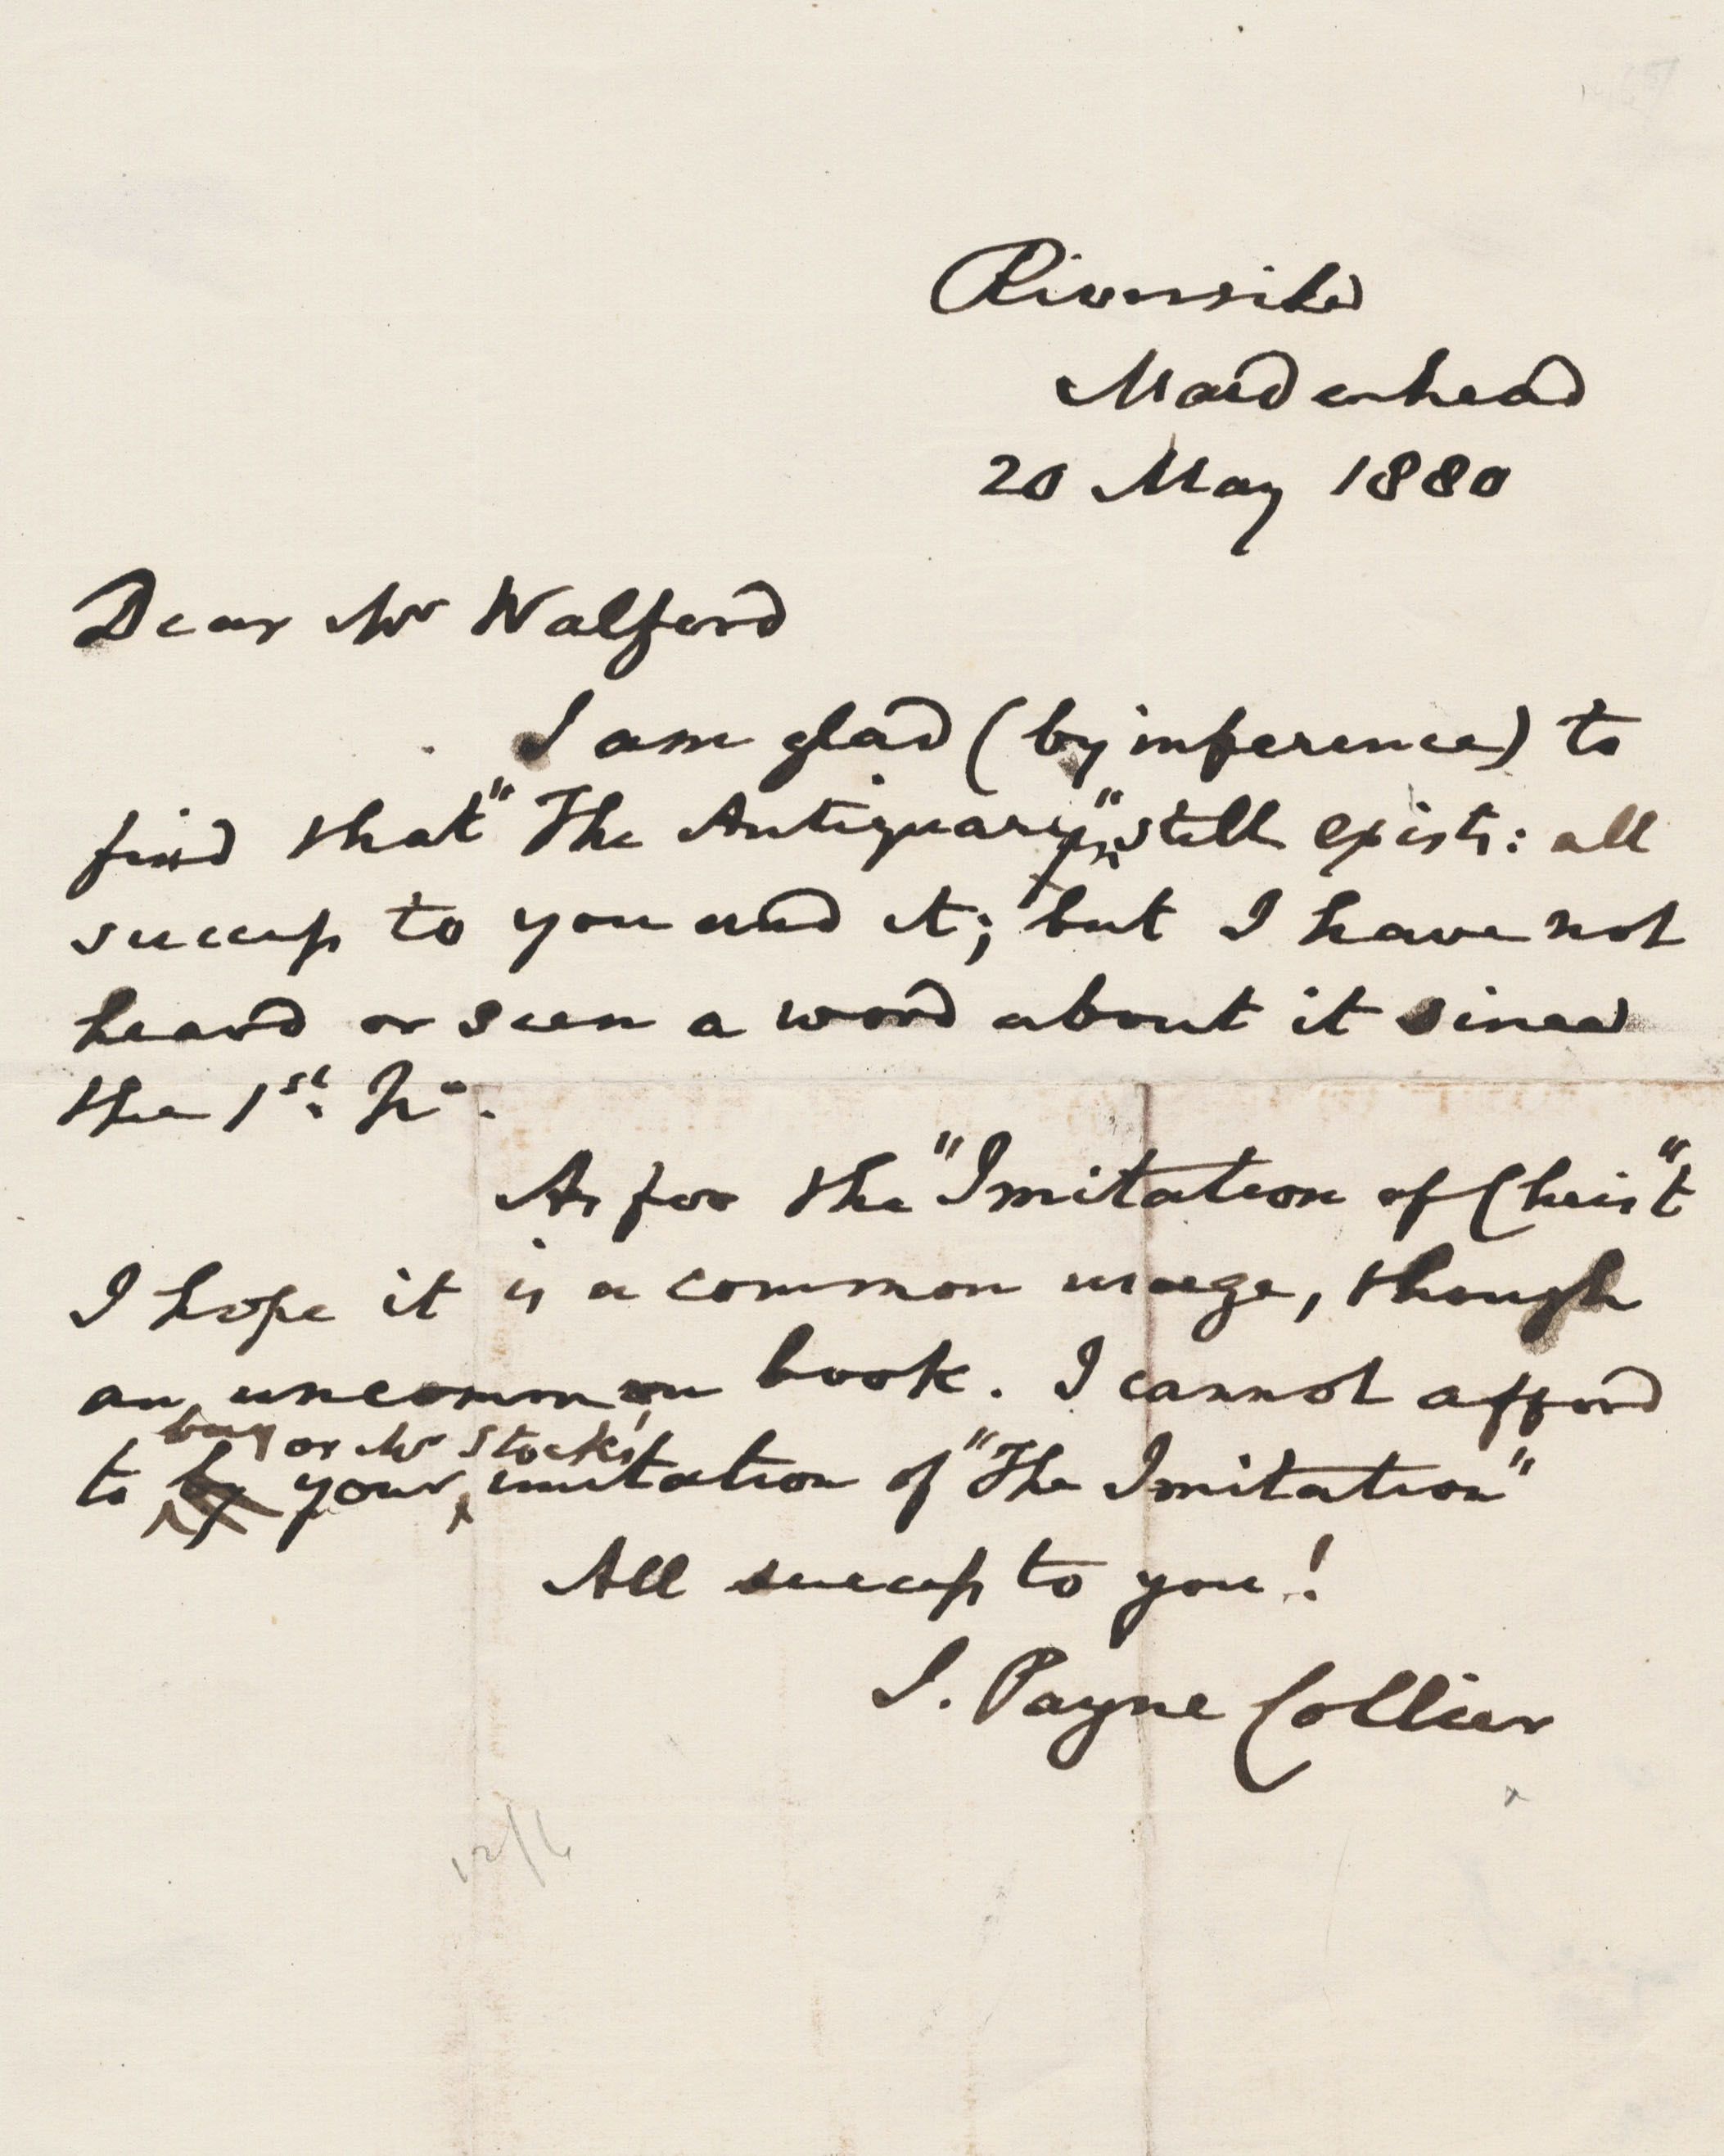 Riverside
Maidenhead
20 May 1880
Dear Mr Walford
I am glad (by inference) to
find that "The Antiquary" still exists: all
success to you and it; but I have not
heard or seen a word about it since
the 1st. No.
As for the "Imitation of Christ"
I hope it is a common usage, though
an uncommon book. I cannot afford
buy or Mr Stock's
to by your imitation of "The Imitation"
All success to you!
J. Payne Collier
12/6